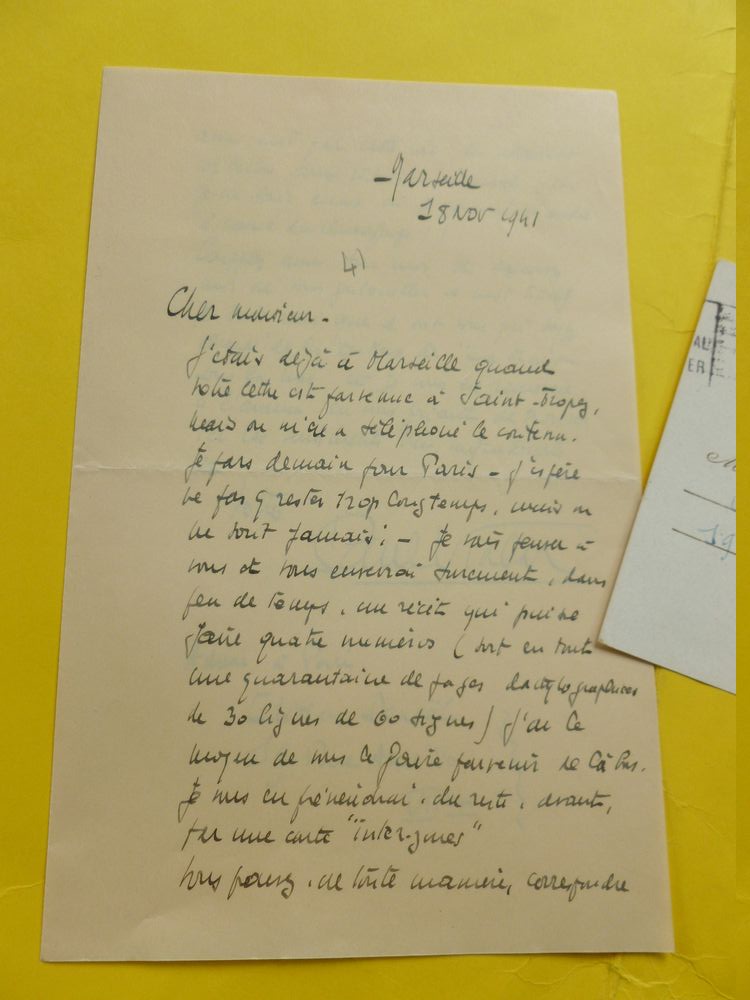 Marseille
18 Nov 1941
41
Cher monsieur -
J'étais déjà à Marseille quand
votre lettre est parvenue à Saint-Tropez,
mais on m'en a téléphoné le contenu.
Je pars demain pour Paris - J'espère
ne pas y rester trop longtemps, mais on
ne sait jamais! - Je vais penser à
vous et vous enverrai surement, dans
peu de temps, un récit qui puisse
faire quatre numéros (soit en tout
une quarantaine de pages dactylographiées
de 30 lignes de 60 signes) J'ai le
moyen de vous le faire parvenir de là bas.
Je vous en préviendrai, du reste, avant,
par une carte "inter-zones"
Vous pouvez, de toute manière, correspondre
AL
ER